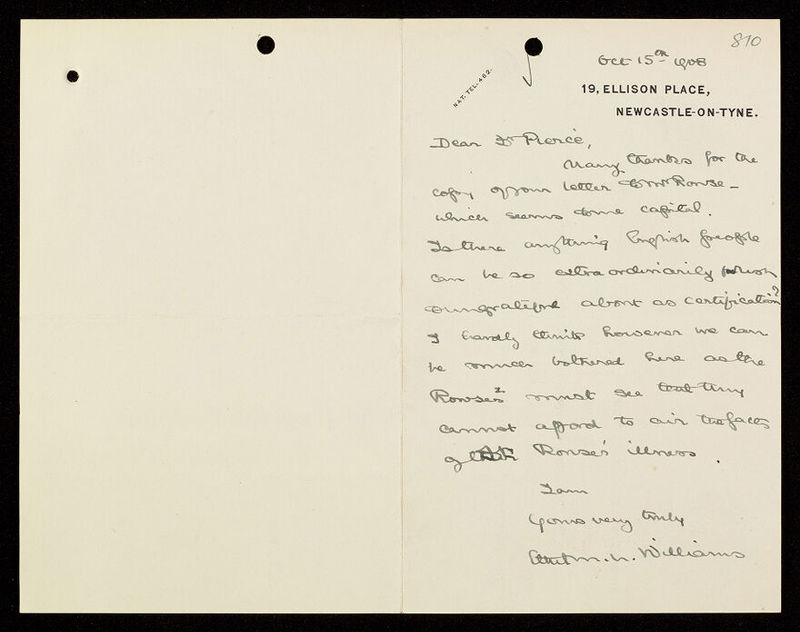 810
Oct 15th 1908
NAT. TEL. 482.
19, ELLISON PLACE,
NEWCASTLE-ON-TYNE.
Dear Dr Pierce,
Many thanks for the
copy of your letter to Mr Rowse -
which seems to me capital.
Is there anything English people
can be so extraordinarily foolish
& ungrateful about as certification?
I hardly think however we can
be much bothered here as the
Rowses must see that they
cannot afford to air the facts
of Rowse's illness.
I am
Yours very truly
Ethel M. N. Williams